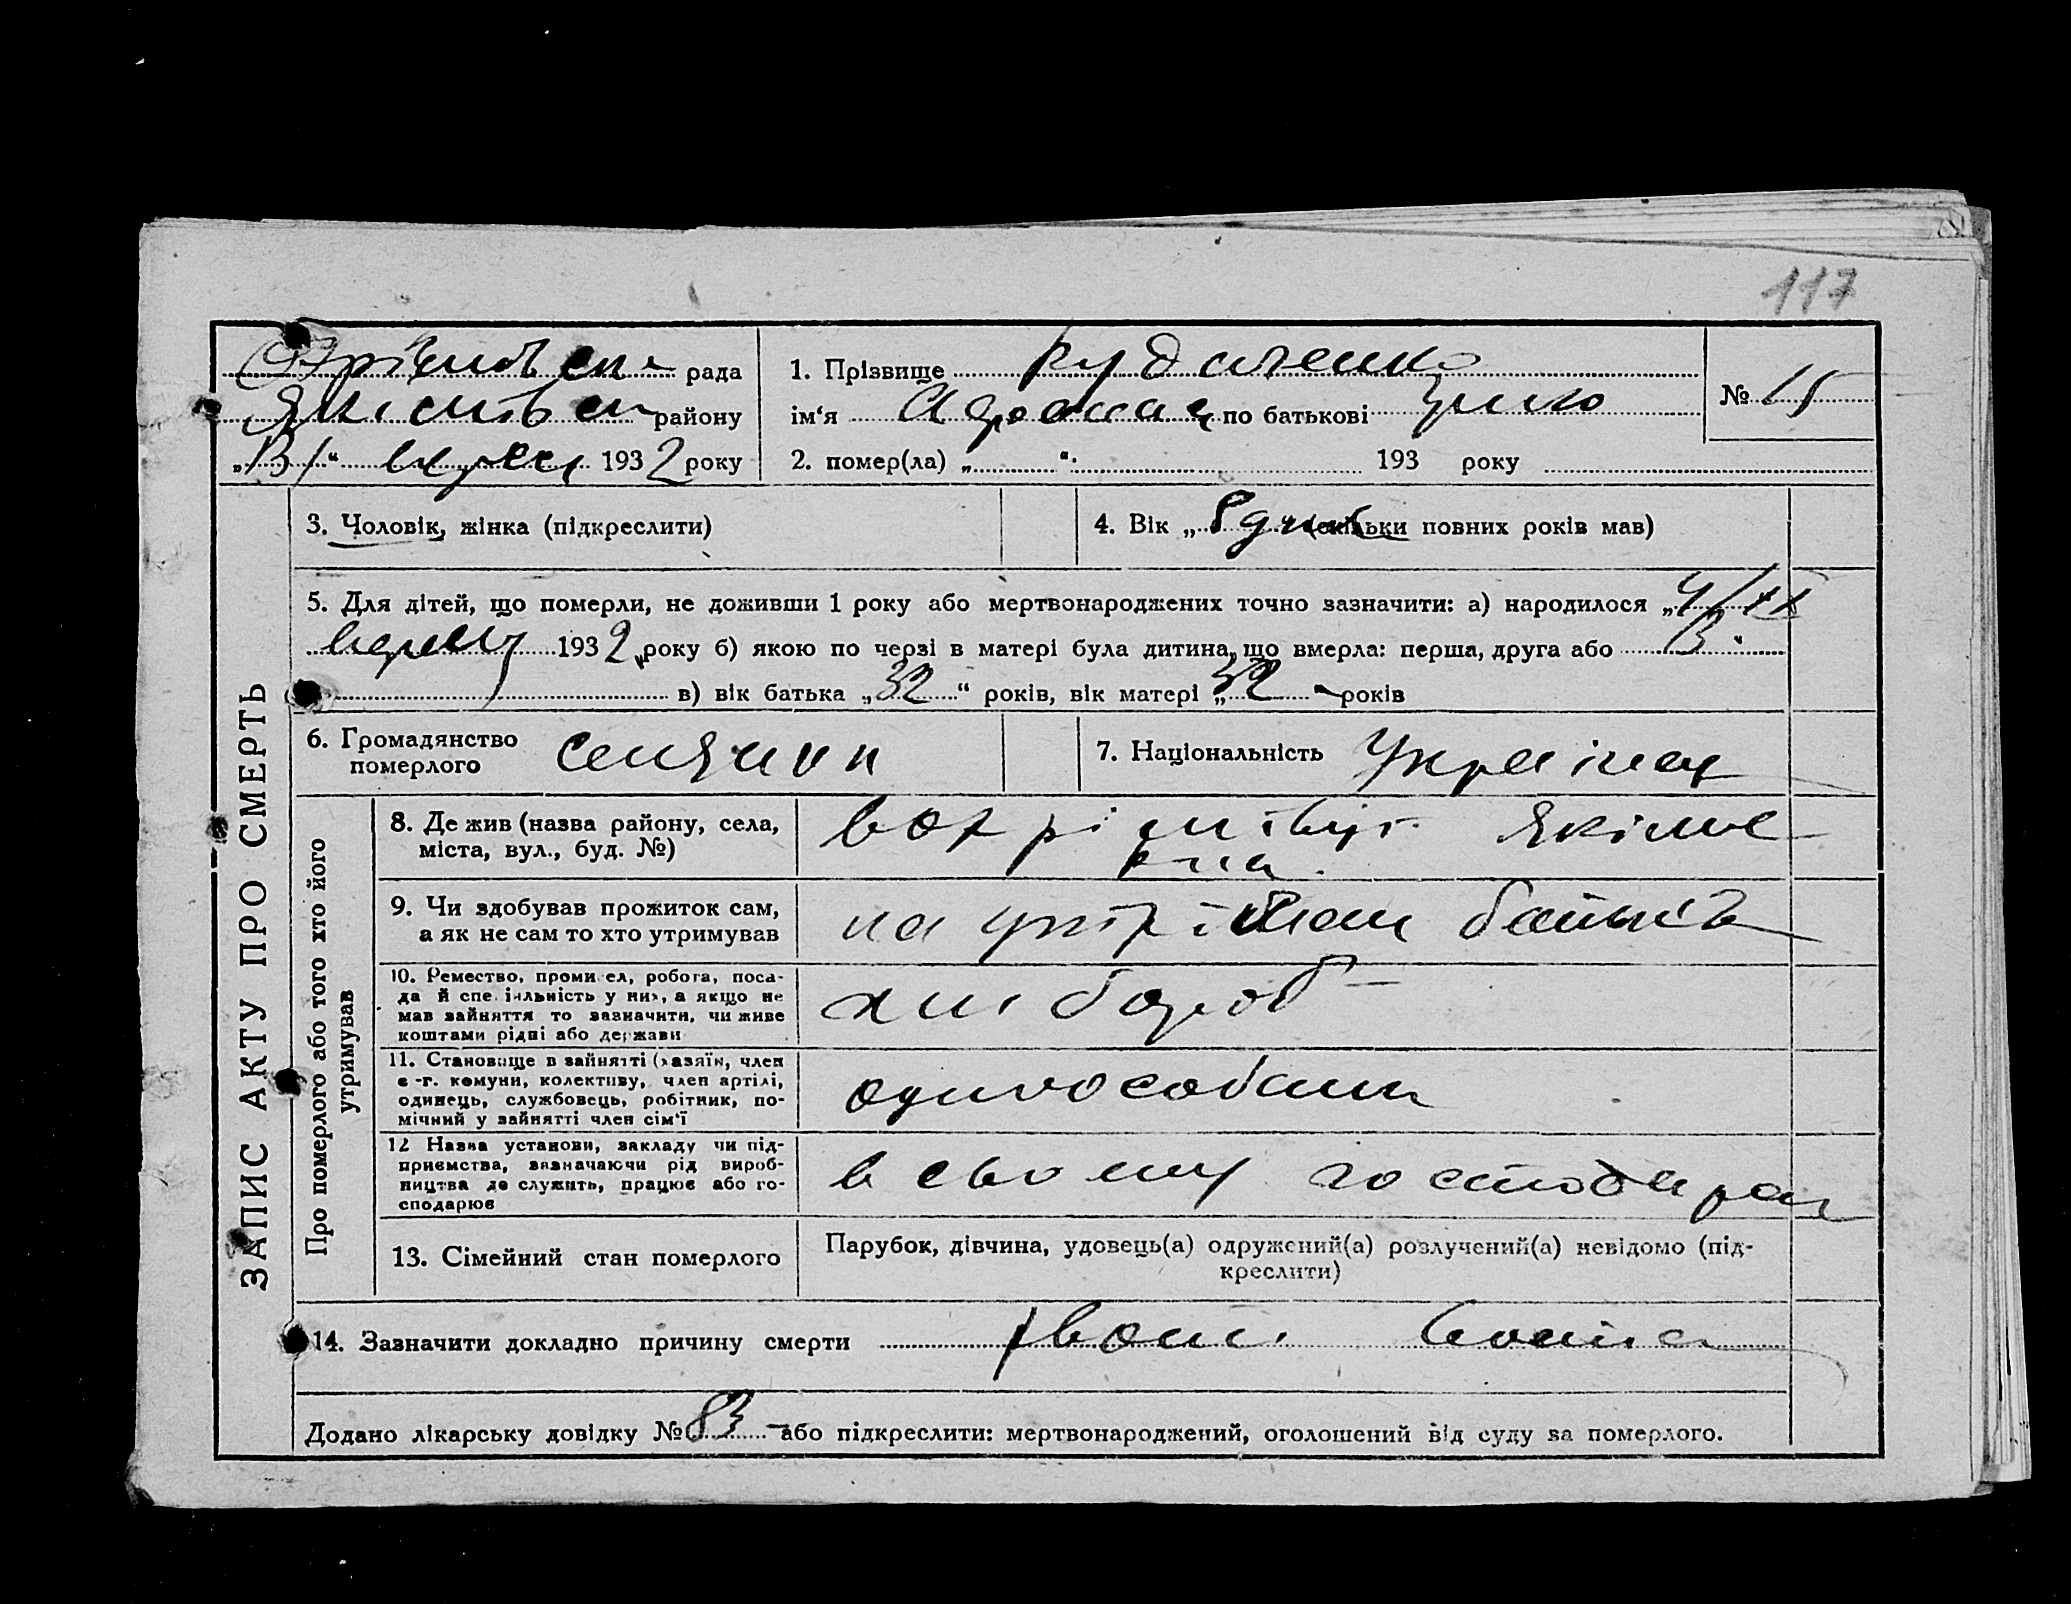 117
Охрімовська рада
Якимівськ району
„13“ верес 1932 року
1. Прізвище
ім‘я по батькові
№ 15
2. помер(ла) „ “ 193 року
3. Чоловік, жінка (підкреслити)
4. Вік „8 днів (скільки повних років мав)
5. Для дітей, що померли, не доживши 1 року або мертвонароджених точно зазначити: а) народилося „4/IX
верес 1932 року б) якою по черзі в матері була дитина, що вмерла: перша, друга або
в) вік батька „32“ років, вік матері „32 років
6. Громадянство
померлого селянин
7. Національність Україн
ЗАПИС АКТУ ПРО СМЕРТЬ
Про померлого або того хто його
утримував
8. Де жив (назва району, села,
міста, вул., буд. №) Якиме
9. Чи здобував прожиток сам,
а як не сам то хто утримував на утріман батьків
10. Ремество, промисел, робота, поса-
да й спеціальність у них, а якщо не
мав зайняття то зазначити, чи живе
коштами рідні або держави хлібороб
11. Становище в зайнятті (хазяїн, член
с.-г. комуни, колективу, член артілі,
одинець, службовець, робітник, по-
мічний у зайнятті член сім‘ї одноосібник
12 Назва установи, закладу чи під-
приємства, зазначаючи рід вироб-
ництва де служить, працює або го-
сподарює в своєму господар
13. Сімейний стан померлого
Парубок, дівчина, удовець(а) одружений(а) розлучений(а) невідомо (під-
креслити)
14. Зазначити докладно причину смерти
Додано лікарську довідку № 83 або підкреслити: мертвонароджений, оголошений від суду за померлого.